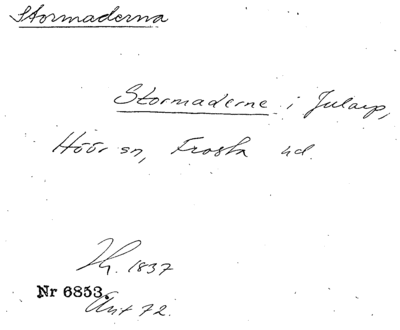 Stormaderna
Stormaderne i Jularp,
Höör sn, Frosta hd.
1837
Nr 6853.
72.